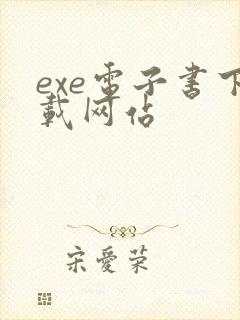 exe电子書下
載网佔
宋愛荣